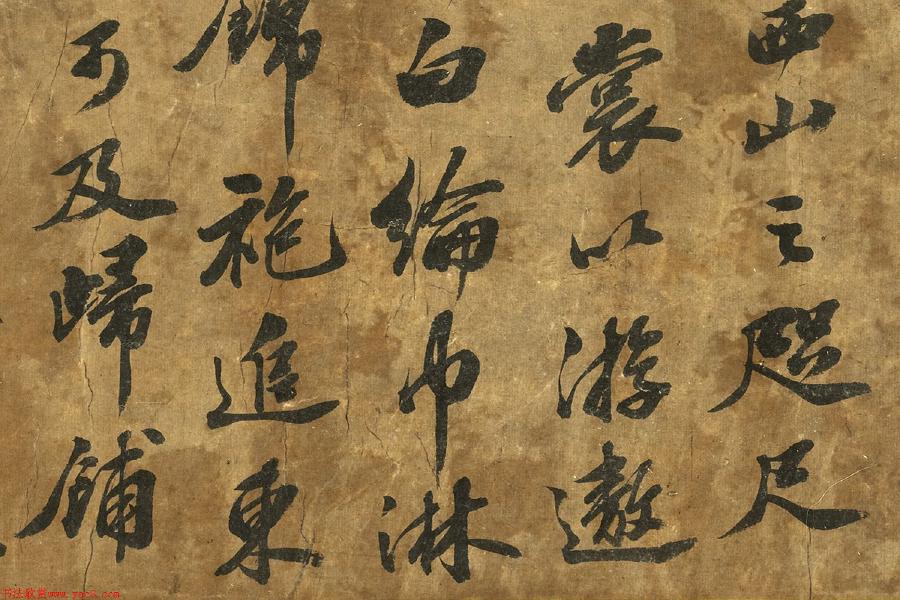 西山之咫尺
裳以游遨
白綸巾淋
錦袍進東
可及歸鋪
书法欣赏www.yac8.com